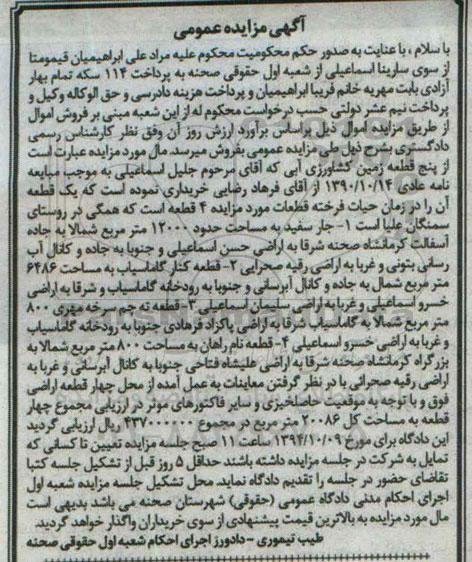 آگهی مزایده عمومی
با سلام ، با عنایت به صدور حکم محکومیت محکوم علیه مراد علی ابراهیمیان قیمومتا
از سوی سارینا اسماعیلی از شعبه اول حقوقی صحنه به پرداخت ۱۱۴ سکه تمام بهار
آزادی بابت مهریه خانم فریبا ابراهیمیان و پرداخت هزینه دادرسی و حق الوکاله وکیل و
پرداخت نیم عشر دولتی حسب درخواست محکوم له از این شعبه مبنی بر فروش اموال
از طریق مزایده اموال ذیل براساس برآورد ارزش روز آن وفق نظر کارشناس رسمی
دادگستری بشرح ذیل طی مزایده عمومی بفروش میرسد. مال مورد مزایده عبارت است
از پنج قطعه زمین کشاورزی آبی که آقای مرحوم جلیل اسماعیلی به موجب مبایعه
نامه عادی ۱۳۹۰/۱۰/۱۴ از آقای فرهاد رضایی خریداری نموده است که یک قطعه
آن را در زمان حیات فرخته قطعات مورد مزایده ۴ قطعه است که همگی در روستای
سمنگان علیا است ۱- جار سفید به مساحت حدود ۱۲۰۰۰ متر مربع شمالا به جاده
آسفالت کرمانشاه صحنه شرقا به اراضی حسن اسماعیلی و جنوبا به جاده و کانال آب
رسانی بتونی و غربا به اراضی رقیه صحرایی ۲- قطعه کنار گاماسیاب به مساحت ۶۴۸۶
متر مربع شمال به جاده و کانال آبرسانی و جنوبا به رودخانه گاماسیاب و شرقا به اراضی
خسرو اسماعیلی و غربا به اراضی سلیمان اسماعیلی ۳- قطعه ته جم سرخه مهری ۸۰۰
متر مربع شمالا به گاماسیاب شرقا به اراضی پاکزاد فرهادی جنوبا به رودخانه گاماسیاب
و غربا به اراضی خسرو اسماعیلی ۴- قطعه نام راهان به مساحت ۸۰۰ متر مربع شمالا به
بزرگراه کرمانشاه صحنه شرقا به اراضی علیشاه فتاحی جنوبا به کانال آبرسانی و غربا به
اراضی رقیه صحرایی با در نظر گرفتن معاینات به عمل آمده از محل چهار قطعه اراضی
فوق و با توجه به موقعیت حاصلخیزی و سایر فاکتورهای موثر در ارزیابی مجموع چهار
قطعه به مساحت کل ۲۰۰۸۶ متر مربع در مجموع ۴۳۷۰۰۰۰۰۰ ریال ارزیابی گردید
این دادگاه برای مورخ ۱۳۹۴/۱۰/۰۹ ساعت ۱۱ صبح جلسه مزایده تعیین تا کسانی که
تمایل به شرکت در جلسه مزایده داشته باشند حداقل ۵ روز قبل از تشکیل جلسه کتبا
تقاضای حضور در جلسه را تقدیم دادگاه نماید. محل تشکیل جلسه مزایده شعبه اول
اجرای احکام مدنی دادگاه عمومی (حقوقی) شهرستان صحنه می باشد بدیهی است
مال مورد مزایده به بالاترین قیمت پیشنهادی از سوی خریداران واگذار خواهد گردید.
طیب تیموری – دادورز اجرای احکام شعبه اول حقوقی صحنه